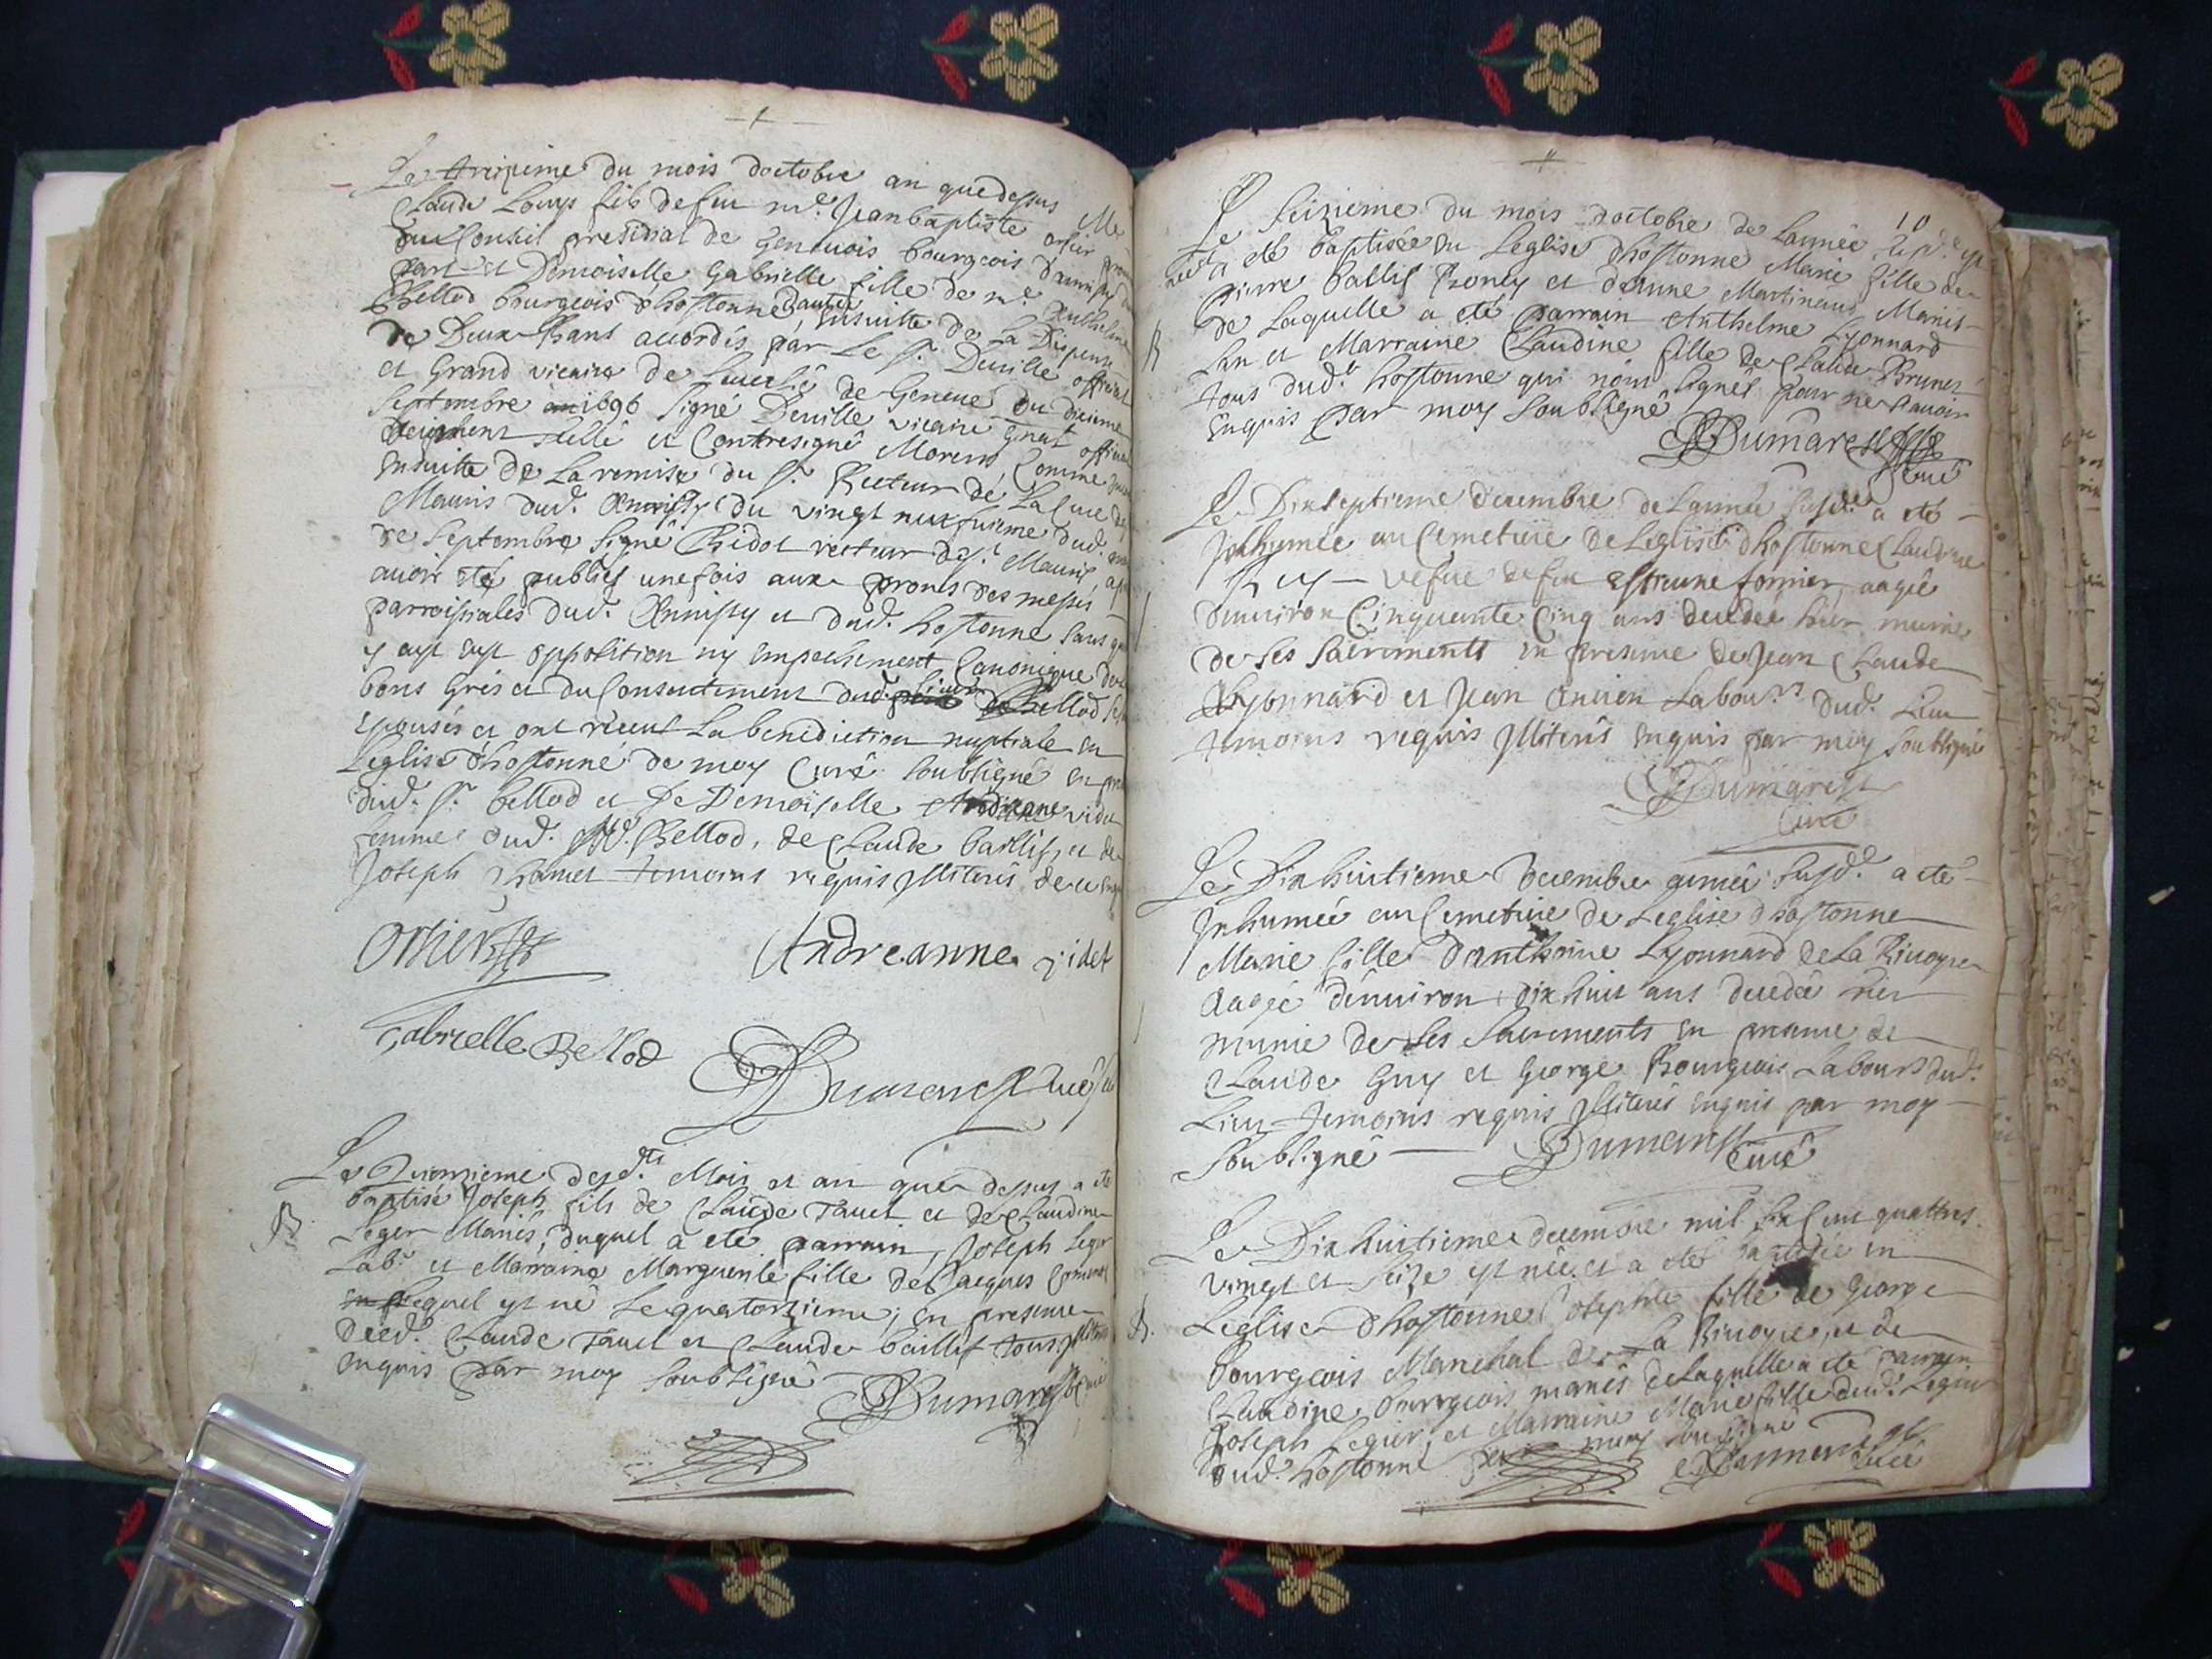 Le treizieme du mois doctobre an que dessus Me
Claude Louys fils de feu me. Jean baptiste orsier
au Conseil presidial de Genevois bourgeois dannissy
part et Demoiselle Gabrielle fille de me Anthelme
Bellod bourgeois dhostonne dautre, Ensuitte de La Dispense
de Deux Bans accordés par Le sr. Deville official
et Grand vicaire de Leveché de Geneve Du
Septembre 1696 signé Deville vicaire gnal official
deüement sellé et Contresigné Morens, Comme
Ensuitte de La remise du sr. Recteur de La Cure de
Mauris dud. Annissy du vingt dud.
de Septembre signé Ridot recteur de st. Mauris,
avoir eté publies une fois aux prones des messes
parroissiales dud. Annissy et dud. hostonne sans
y aye eup opposition ny Empechement Canonique
bons gres et du Consentement dud. sieur Bellod
epousés et ont receut La benediction nuptiale en
Leglise d'hostonne de moy Curé soubsigné en
dud. sr. bellod et De Demoiselle Andreane videt
femme dud. Bellod, de Claude baillif, et de
Joseph temoins requis Illiterés de ce enquis
Orsier
Andreanne videt
Gabrielle Bellod
Dumarest Curé
Le Quinzieme desd.ts Mois et an que dessus a eté
B
baptisé Joseph fils de Claude Tavel et de Claudine
Leger Mariés, duquel a eté parrain, Joseph Leger
Lab.r et Marraine Marguerite fille de Jacques
Lequel est né Le quatorzieme, en presence
dud. Claude Tavel et Claude baillif tous Illiterés
enquis par moy soubsigné
Dumarest Curé
10
Le seizieme du mois doctobre de Lannée susd.e est
née et a eté baptisée en Leglise dhostonne Marie fille de
Pierre baillif Roney et danne Martinand Mariés
B
de Laquelle a eté parrain Anthelme Lyonnard
et Marraine Claudine fille de Claude Brunet
tous dud.t hostonne qui nont signés pour ne scavoir
Enquis par moy soubsigné
Dumarest
Curé
Le Dix septieme decembre de Lannée susd.e a eté
Inhumée au Cemetiere de Leglise dhostonne Claudine
Guy vefue de feu Estienne fornier, aagée
denviron Cinquante Cinq ans decedée hier munie
de ses sacrements en presence de Jean Claude
Lyonnard et Jean Ancien Labour.rs dud. Lieu
temoins requis Illiterés enquis par moy soubsigné
Dumarest
Curé
Le Dix huitieme decembre année susd.e a eté
Inhumée au Cemetiere de Leglise dhostonne
Marie fille Danthoine Lyonnard de La Rivoyre
Aagée denviron dix huit ans decedée hier
munie de ses sacrements en presence de
Claude Guy et George Bourgeois Labours dud.
Lieu temoins requis Illiterés enquis par moy
soubsigné
Dumarest
Curé
Le Dix huitieme decembre mil six cent quattre
vingt et seize est née et a eté baptisée en
B.
Leglise dhostonne Josephte fille de George
bourgeois Marechal de La Rivoyre, et de
Claudine bourgeois mariés de Laquelle a eté parrain
Joseph Legier, et Marraine Marie fille dud. Legier
dud. hostonne par moy soubsigné
Dumarest
Curé